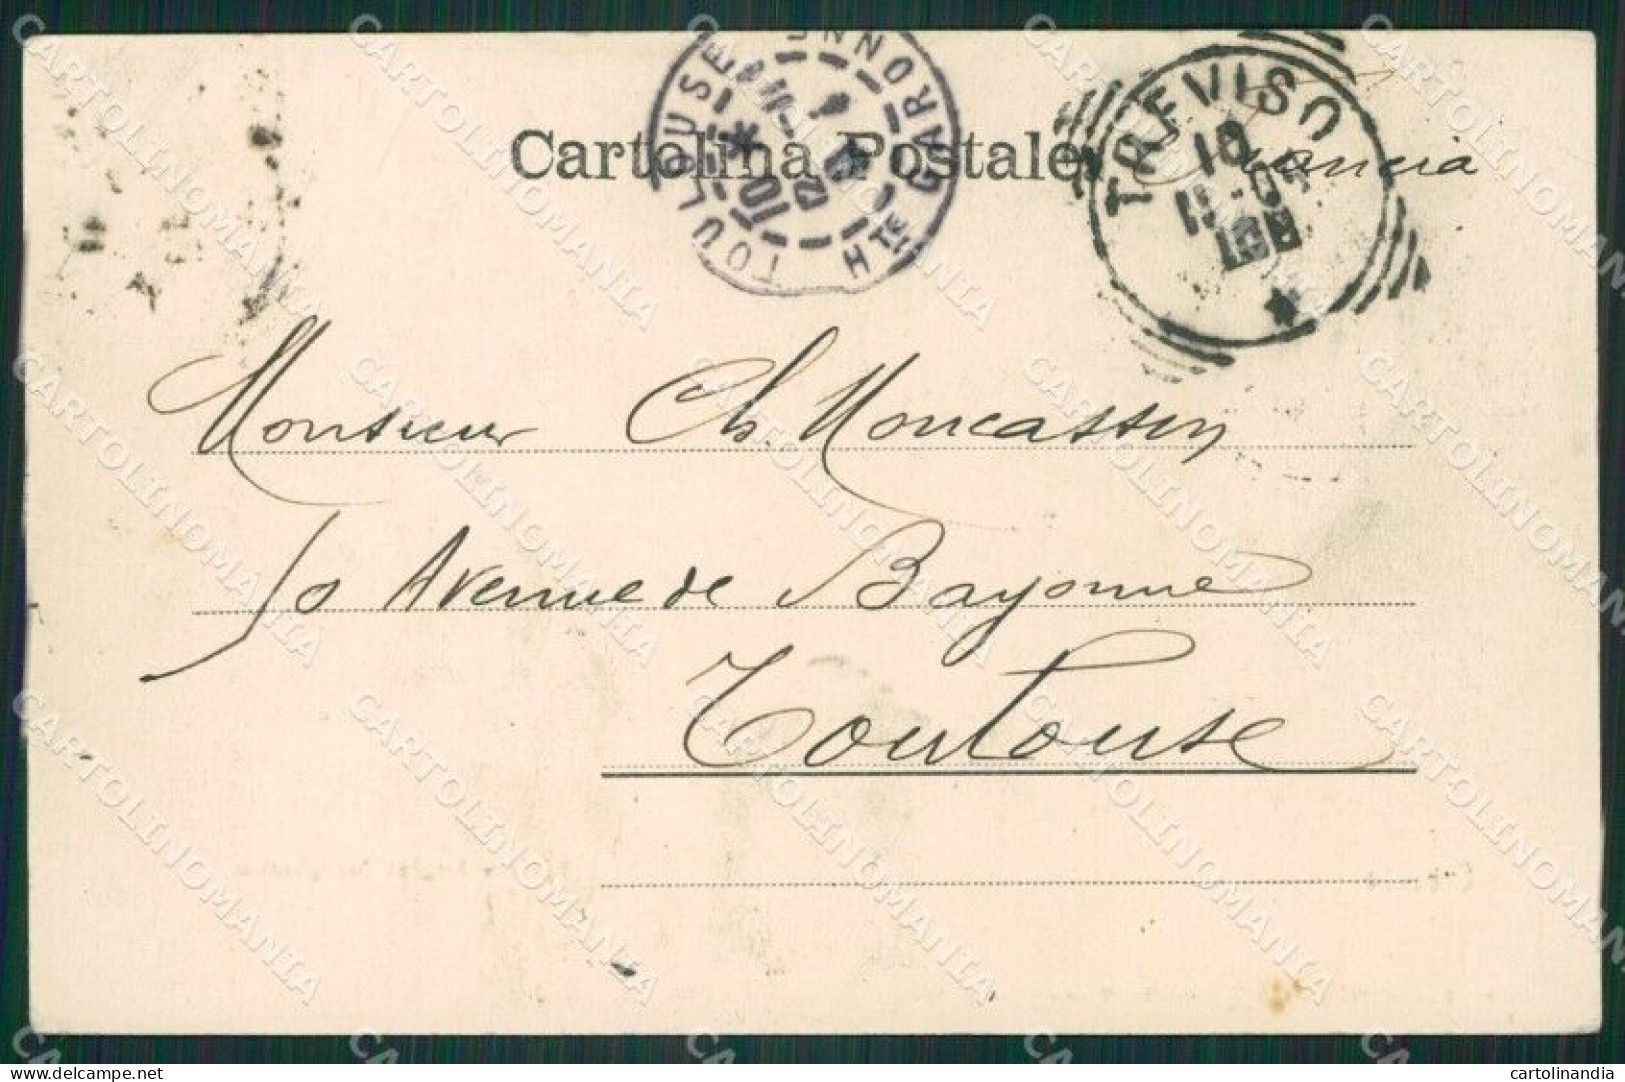 Cartolina Postale
Francia
TOULOUSE
Hte GARONNE
TREVISO
Monsieur Ch. Moncassin
50 Avenue de Bayonne
Toulouse
CARTOLINOMANIA
cartolinandia